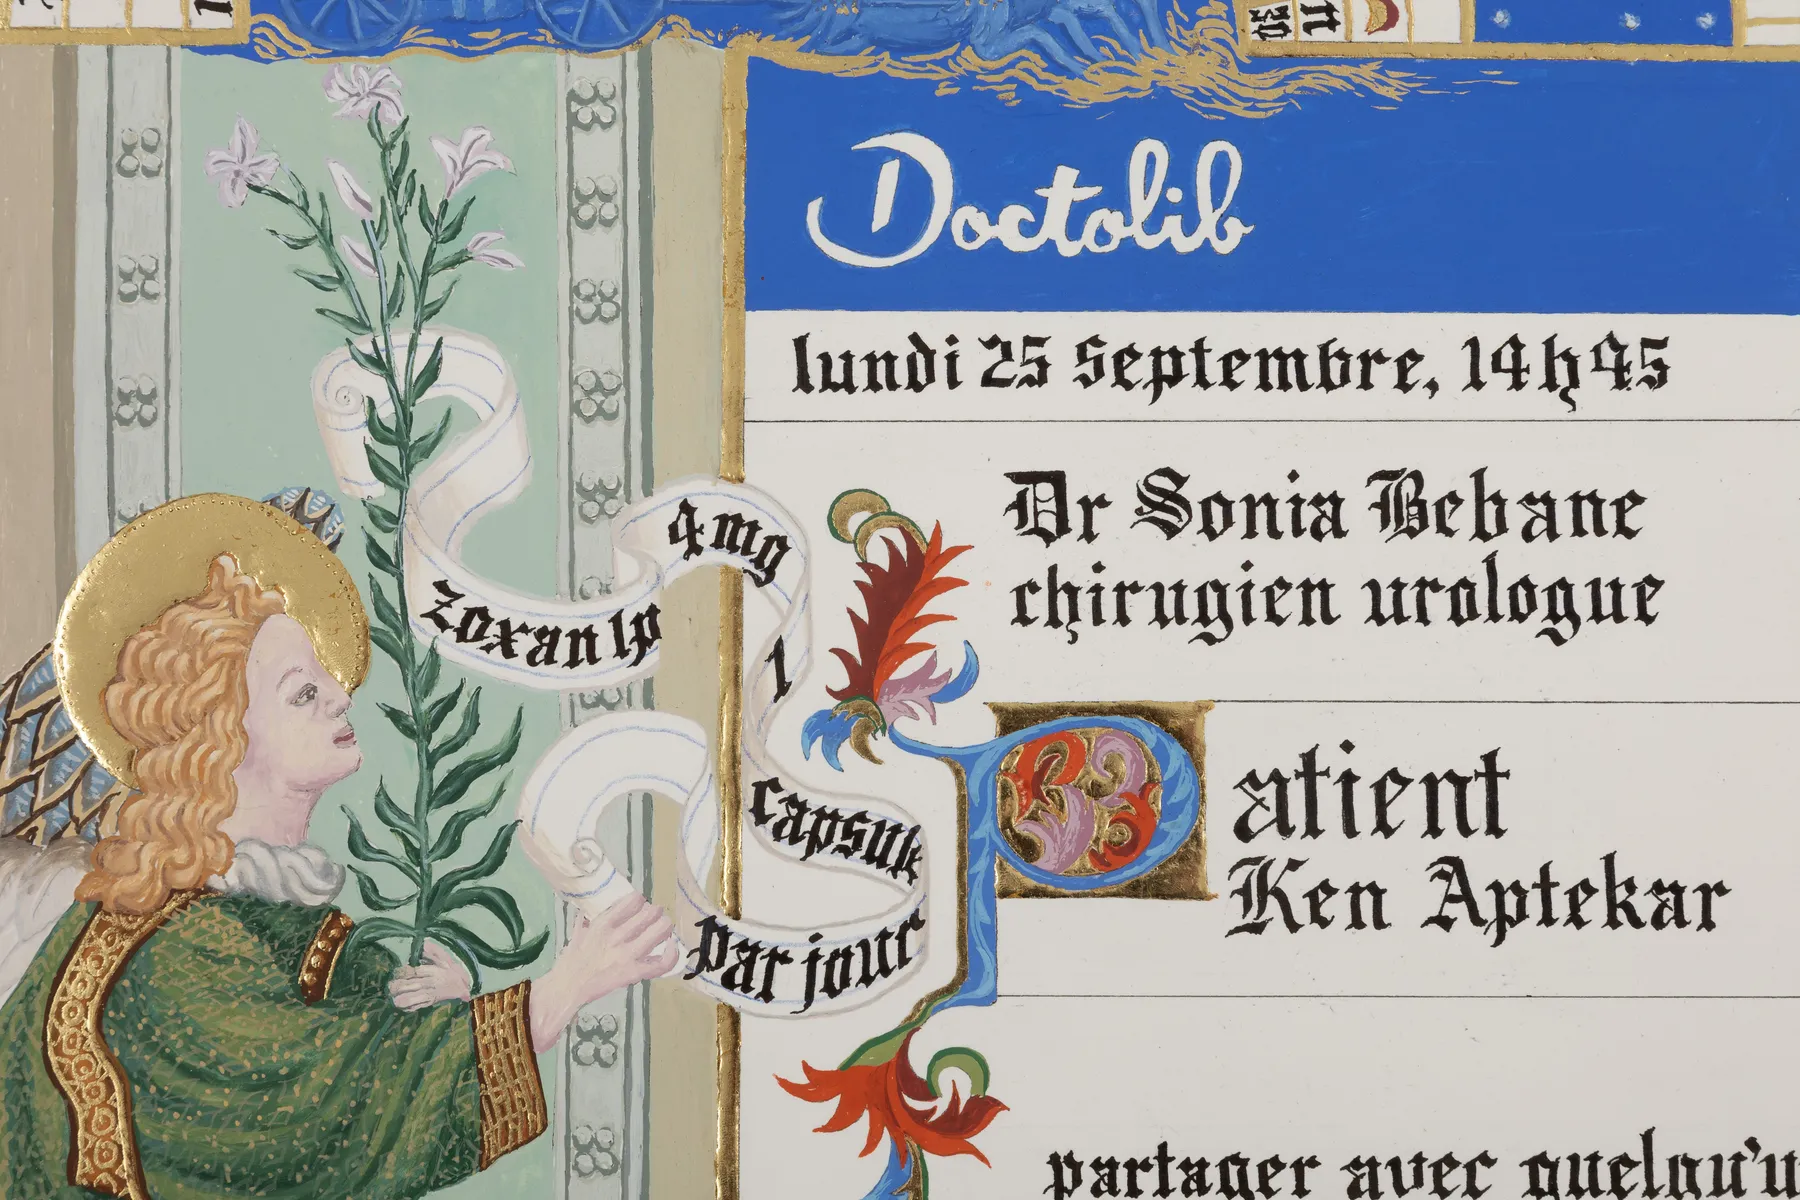 Doctolib
lundi 25 Septembre, 14h45
Dr Sonia Bebane
chirugien urologue
Patient
Ken Aptekar
partager avec quelqu'u
zoxan lp
4 mg
1
capsule
par jour